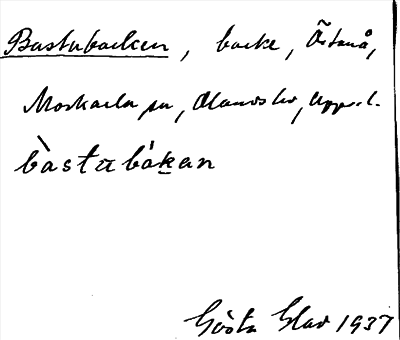 Bastubacken, backe, Östanå,
Morkarla sn, Olands hd, Upps. l.
bàstu̅bákan
Gösta Glad 1937